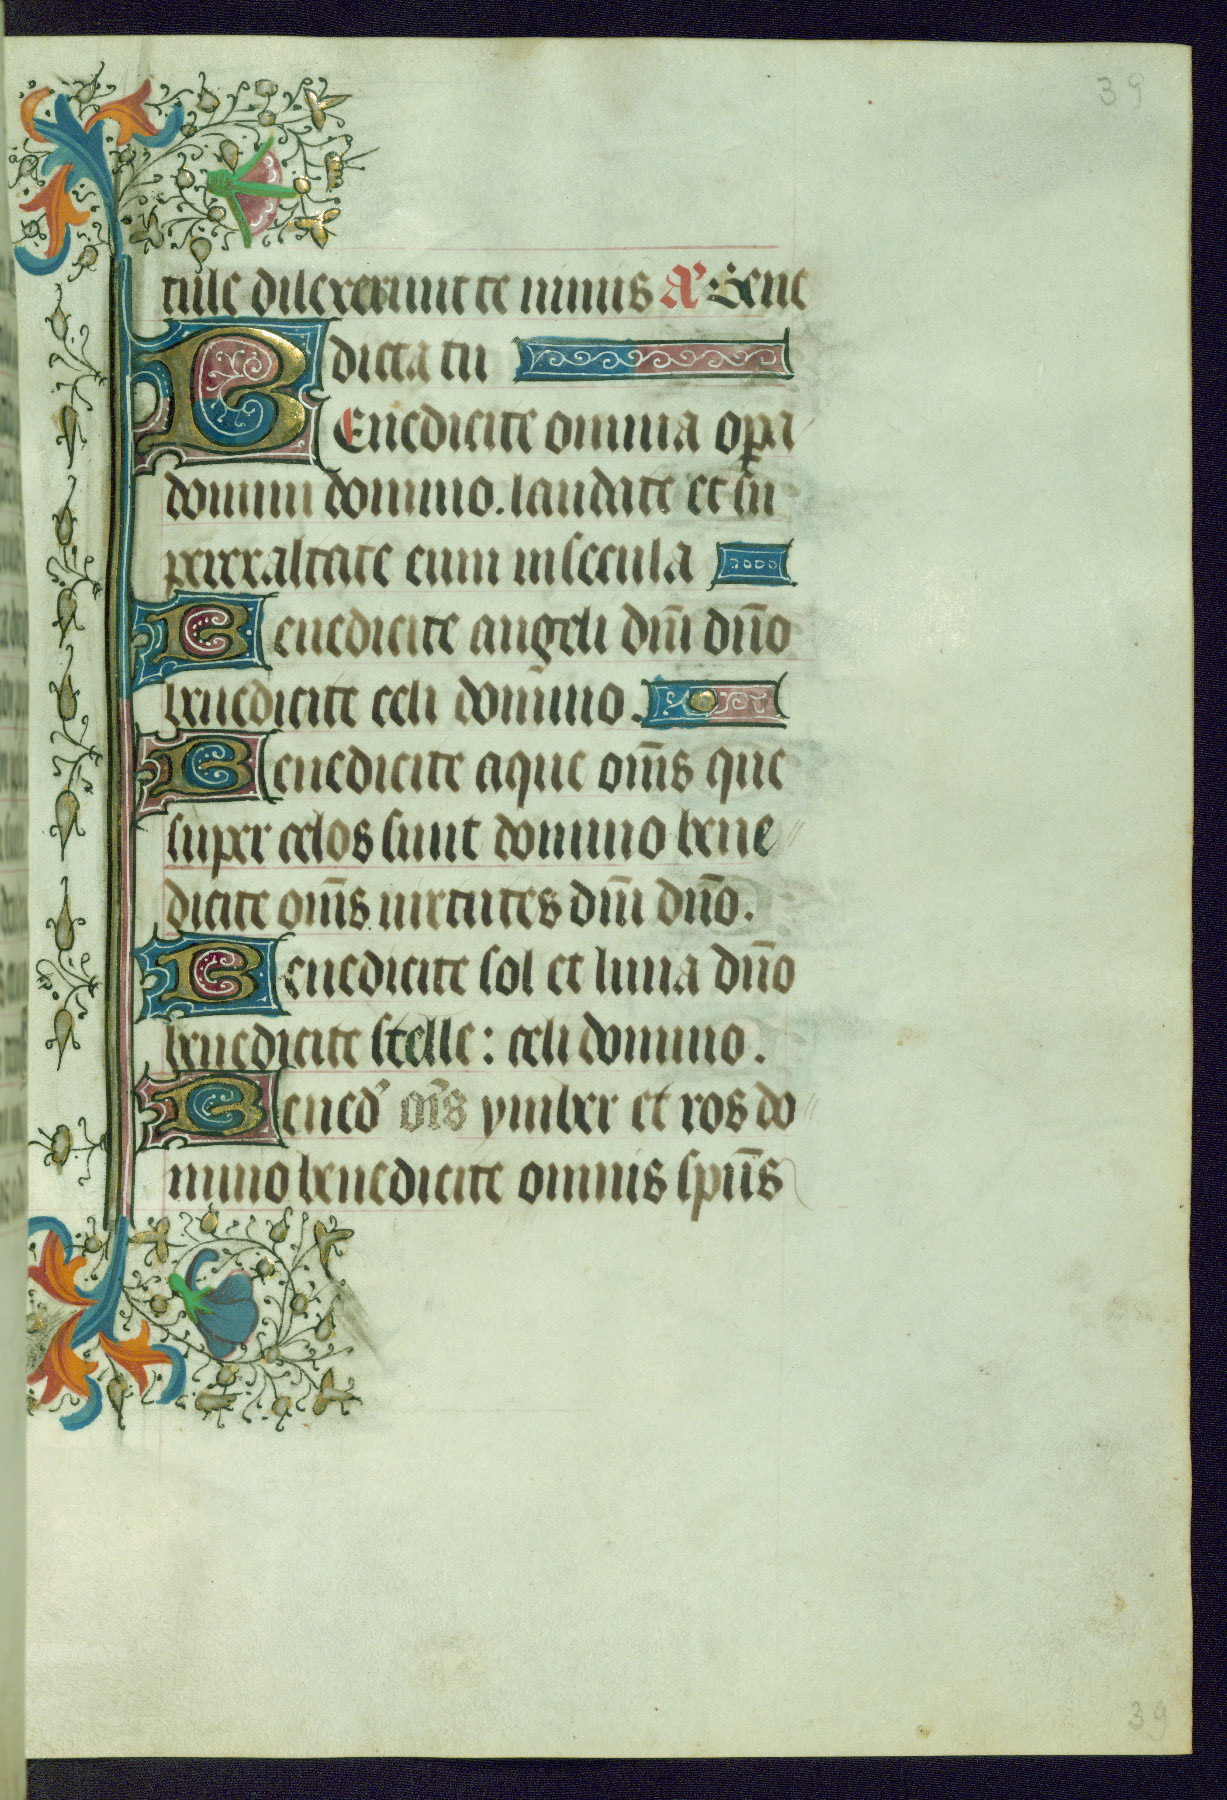 39
tule dilexerunt te nimis A' Bene
dicta tu
BEnedicite omnia opa
domini domino. laudate et su
perexaltate eum in secula
Benedicite angeli dn̄i dn̄o
benedicite celi domino.
Benedicite aque om̄s que
super celos sunt domino bene
dicite om̄s uirtutes dn̄i dn̄o.
Benedicite sol et luna dn̄o
benedicite stelle: celi domino.
Bened' oīs ymber et ros do
mino benedicite omnis sp̄us
39